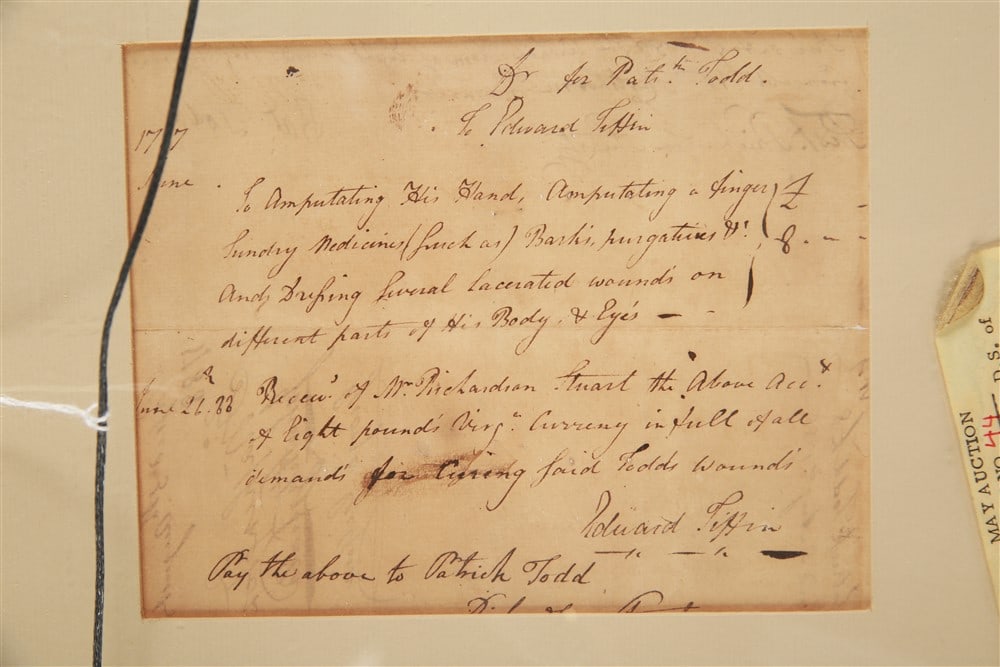 Dr for Patr. Todd.
To Edward Tiffin
June
To Amputating His Hand, Amputating a finger £
Sundry Medicines (such as) Bark's, purgatives &c. 8. - -
And Dressing Several lacerated wounds on
different parts of His Body, & Eye's —
June 21. 88 Receiv'd of Mr. Richardson Stuart the Above Acct.
of Eight pounds Virga. Currency in full of all
demands for Curing said Todd's wounds.
Edward Tiffin
Pay the above to Patrick Todd
MAY AUCTION
NO. 44
D.S. of